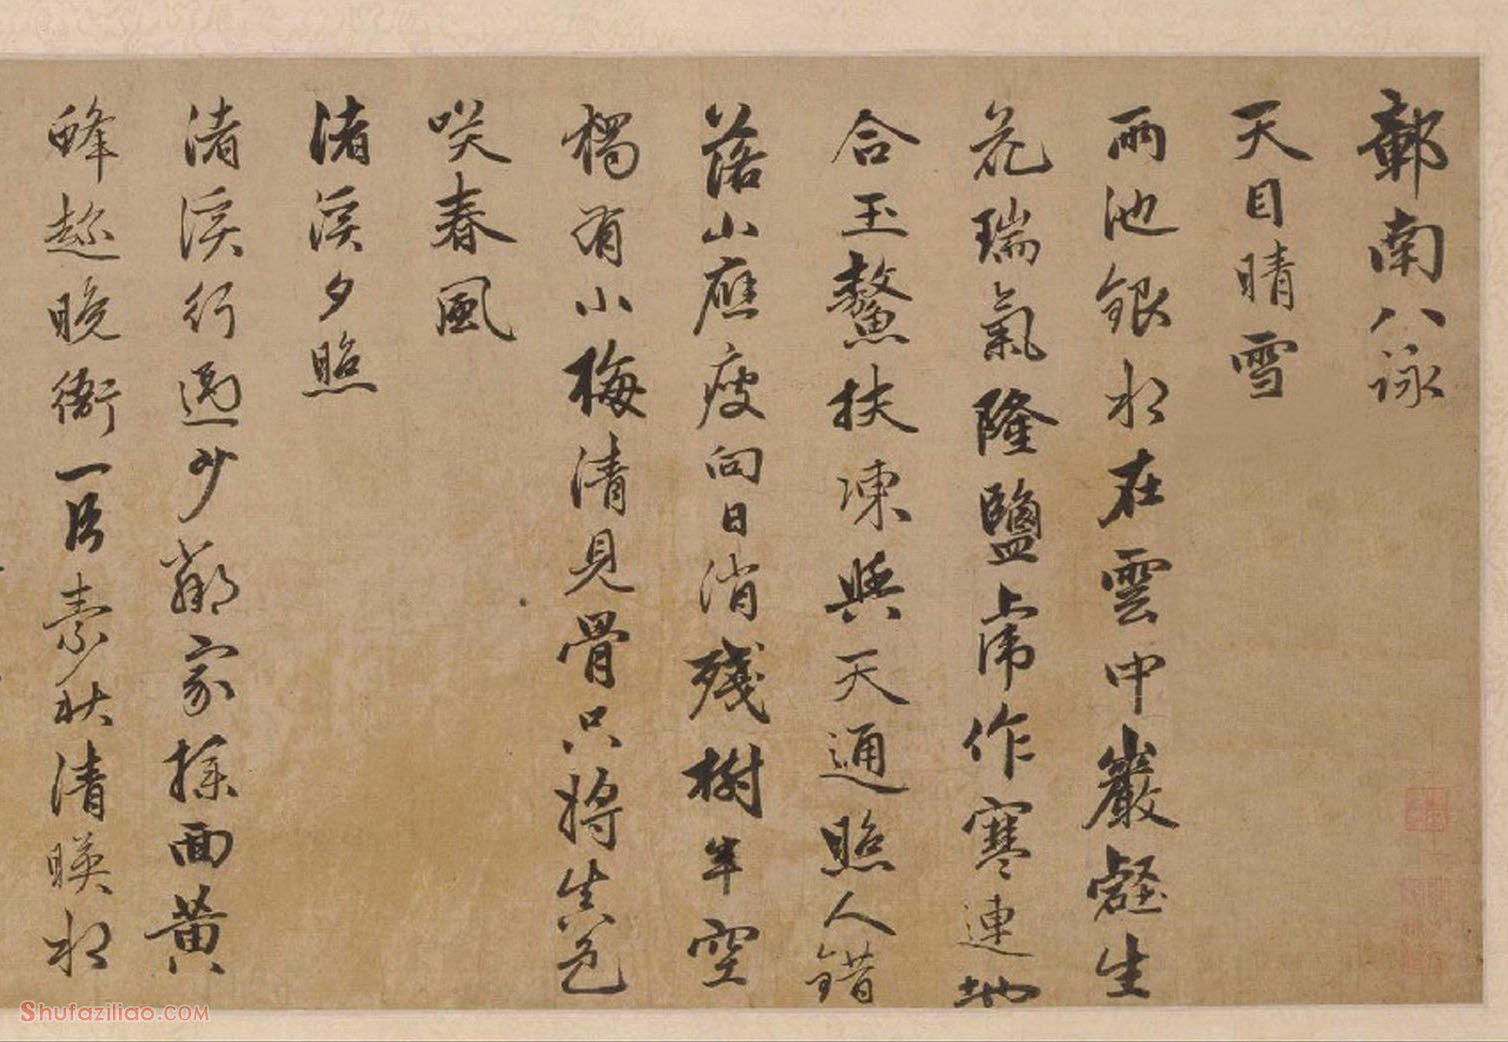 鄣南八詠
天目晴雪
兩池銀水在雲中巖壑生
花瑞氣隆鹽席作寒連地
合玉鰲扶凍與天通照人錯
落山應瘦向日消殘樹半空
獨有小梅清見骨只將生色
咲春風
渚溪夕照
渚溪行過少鄰家採面黃
蜂趂晚衙一片素秋清暎水
Shufaziliao.COM